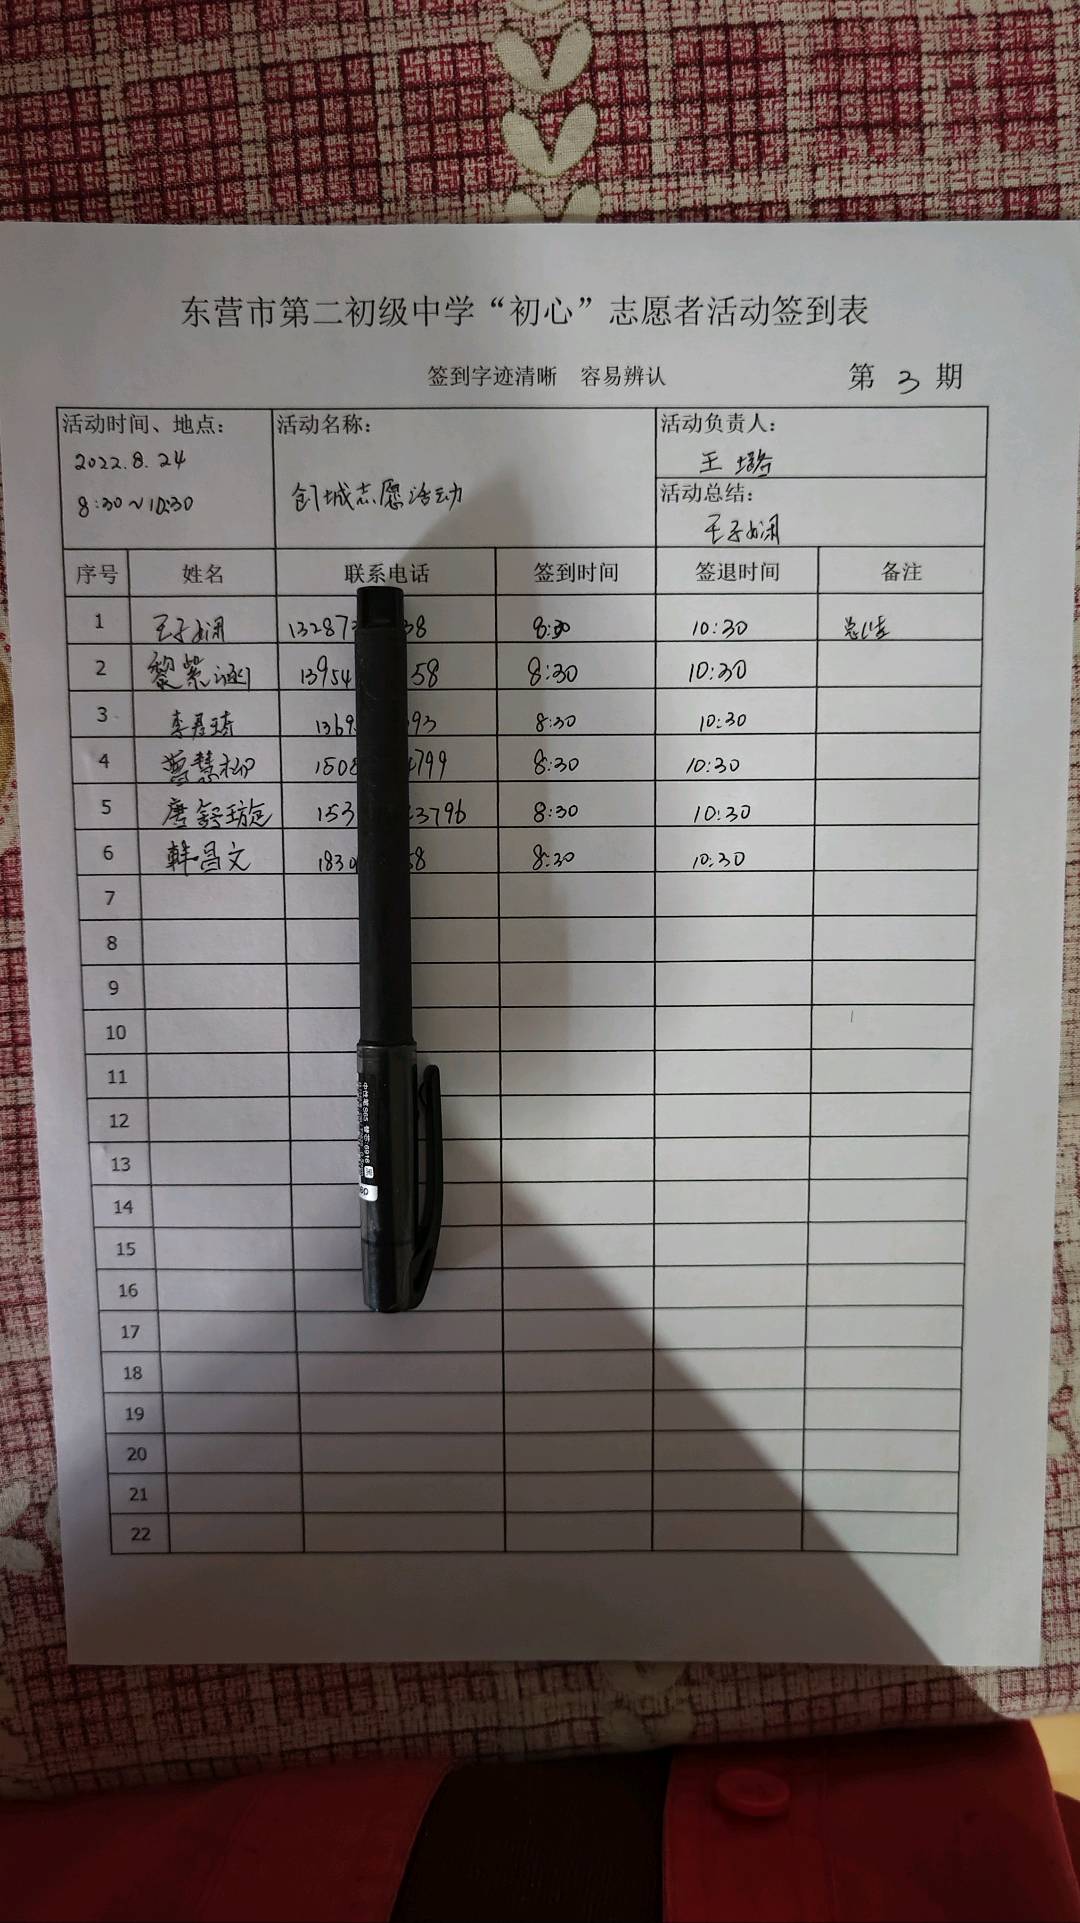 东营市第二初级中学“初心”志愿者活动签到表
签到字迹清晰 容易辨认 第 3 期
活动时间、地点： 活动名称： 活动负责人：
2022.8.24 王璐
8:30～10:30 创城志愿活动 活动总结：
王子娴
序号 姓名 联系电话 签到时间 签退时间 备注
1 王子娴 13287 38 8:30 10:30 总结
2 黎紫涵 13954 58 8:30 10:30
3 李彦琦 1369 93 8:30 10:30
4 曹慧柳 1508 4799 8:30 10:30
5 唐舒璇 153 3796 8:30 10:30
6 韩昌文 1830 58 8:30 10:30
7
8
9
10
11
12
13
14
15
16
17
18
19
20
21
22